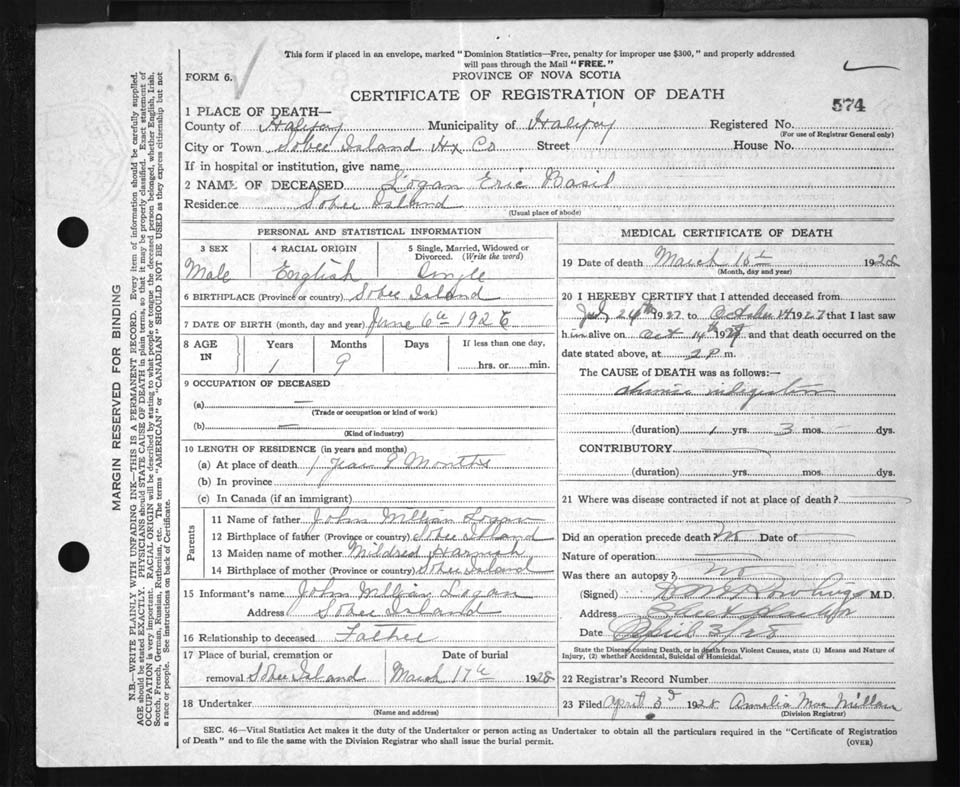 This form if placed in an envelope, marked "Dominion Statistics—Free, penalty for improper use $300," and properly addressed
will pass through the Mail "FREE."
FORM 6.
PROVINCE OF NOVA SCOTIA
CERTIFICATE OF REGISTRATION OF DEATH
574
1 PLACE OF DEATH—
County of Halifax Municipality of Halifax Registered No.
(For use of Registrar General only)
City or Town Sober Island Hx Co Street House No.
If in hospital or institution, give name
2 NAME OF DECEASED Logan Eric Basil
Residence Sober Island
(Usual place of abode)
PERSONAL AND STATISTICAL INFORMATION
3 SEX 4 RACIAL ORIGIN 5 Single, Married, Widowed or
Divorced. (Write the word)
Male English Single
6 BIRTHPLACE (Province or country) Sober Island
7 DATE OF BIRTH (month, day and year) June 6th 1926
8 AGE IN Years Months Days If less than one day,
1 9 hrs. or min.
9 OCCUPATION OF DECEASED
(a) —
(Trade or occupation or kind of work)
(b) —
(Kind of industry)
10 LENGTH OF RESIDENCE (in years and months)
(a) At place of death 1 Year 9 Months
(b) In province
(c) In Canada (if an immigrant)
Parents
11 Name of father John William Logan
12 Birthplace of father (Province or country) Sober Island
13 Maiden name of mother Mildred Harnish
14 Birthplace of mother (Province or country) Sober Island
15 Informant's name John William Logan
Address Sober Island
16 Relationship to deceased Father
17 Place of burial, cremation or Date of burial
removal Sober Island March 17th 1928
18 Undertaker
(Name and address)
MEDICAL CERTIFICATE OF DEATH
19 Date of death March 16th 1928
(Month, day and year)
20 I HEREBY CERTIFY that I attended deceased from
July 24th 1927 to October 14 1927 that I last saw
him alive on Oct 14th 1927 and that death occurred on the
date stated above, at 2 P. m.
The CAUSE of DEATH was as follows:—
chronic indigestion
(duration) 1 yrs. 3 mos. - dys.
CONTRIBUTORY
(duration) yrs. mos. dys.
21 Where was disease contracted if not at place of death?
Did an operation precede death? No Date of
Nature of operation
Was there an autopsy? No
(Signed) Rowlings M.D.
Address Sheet Harbor
Date April 3/28
State the Disease causing Death, or in death from Violent Causes, state (1) Means and Nature of
Injury, (2) whether Accidental, Suicidal or Homicidal.
22 Registrar's Record Number
23 Filed April 3rd 1928 Amelia MacMillan
(Division Registrar)
SEC. 46—Vital Statistics Act makes it the duty of the Undertaker or person acting as Undertaker to obtain all the particulars required in the "Certificate of Registration
of Death" and to file the same with the Division Registrar who shall issue the burial permit.
(OVER)
MARGIN RESERVED FOR BINDING
N.B.—WRITE PLAINLY WITH UNFADING INK—THIS IS A PERMANENT RECORD. Every item of information should be carefully supplied.
AGE should be stated EXACTLY. PHYSICIANS should STATE CAUSE OF DEATH in plain terms, so that it may be properly classified. Exact statement of
OCCUPATION is very important. RACIAL ORIGIN will be described by stating to what people or tongue the deceased person belonged, whether English, Irish,
Scotch, French, German, Russian, Ruthenian, etc. The terms "AMERICAN" or "CANADIAN" SHOULD NOT BE USED as they express citizenship but not
a race or people. See instructions on back of Certificate.